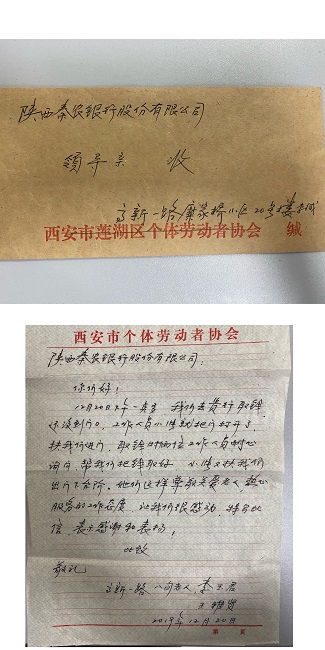 陕西秦农银行股份有限公司
领导亲 收
高新一路糜家桥小区20号楼
西安市莲湖区个体劳动者协会 缄
西安市个体劳动者协会
陕西秦农银行股份有限公司：
你们好！
12月20日 我们去贵行取钱
还没到门口，工作人员小 就把门打开了，
扶我们进门，取钱时 位工作人员耐心
询问，帮我们把钱取好 小 又扶我们
出门下台阶。他们这样尊敬关爱老人，热心
服务的工作态度，让我们很感动，特写此
信 表示感谢和表扬，
此致
敬礼
高新一路 八旬老人 李玉
王
2019年12月20日
第 页